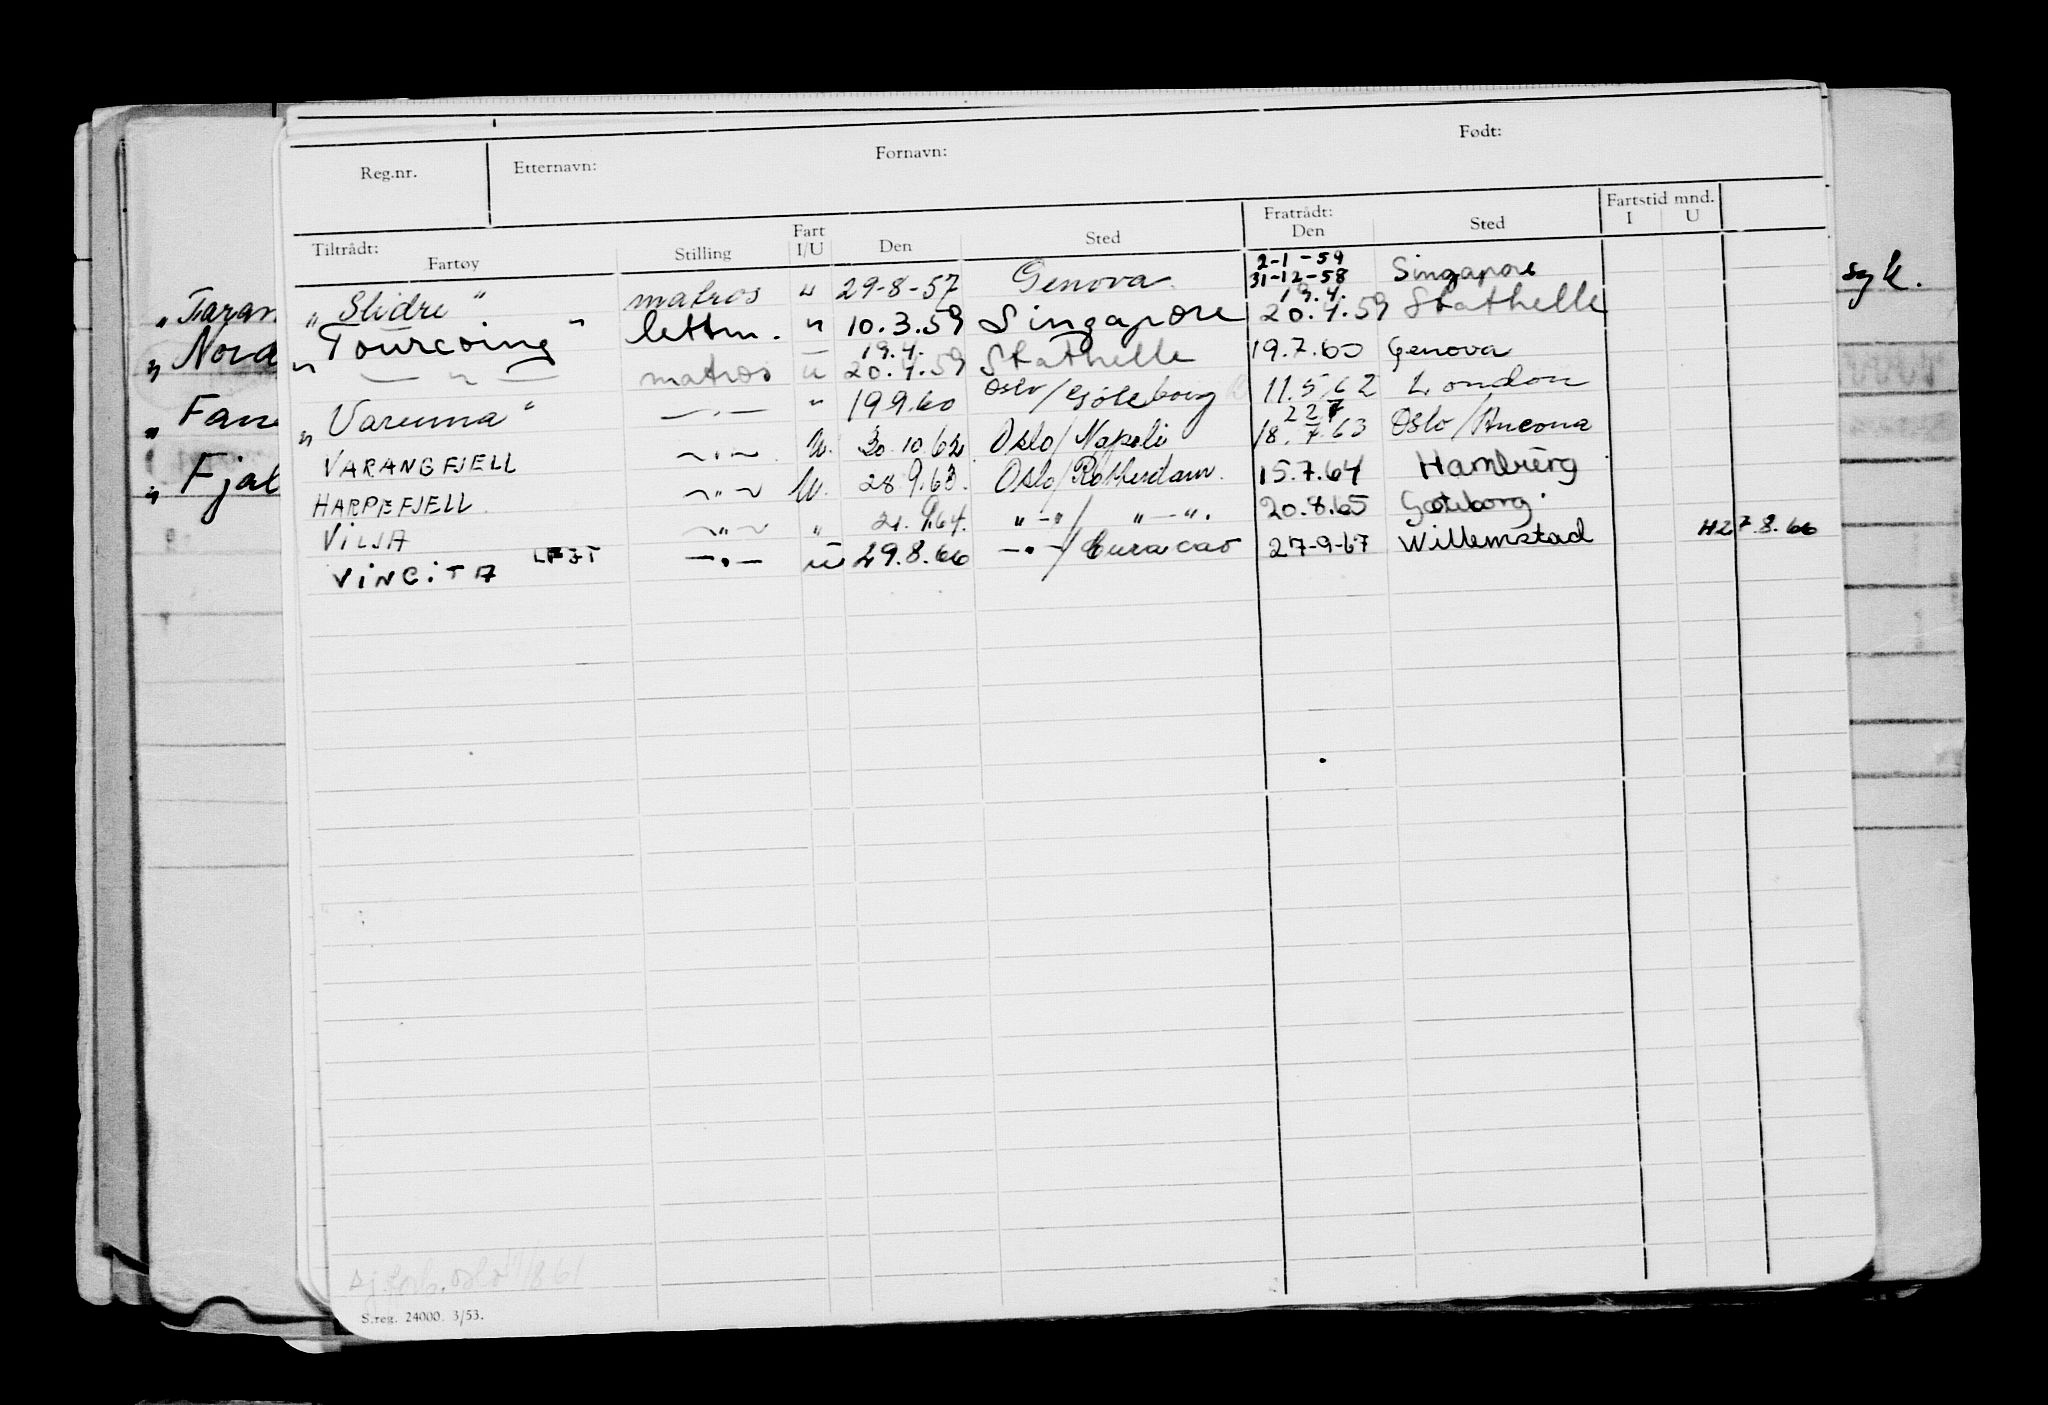 Reg.nr. Etternavn: Fornavn: Født:
Tiltrådt: Fratrådt: Fartstid mnd.
Fartøy Stilling Fart I/U Den Sted Den Sted I U
2-1-59
„ Slidre " matros " 29-8-57 Genova 31-12-58 Singapore
19.4.
„ Tourcoing " lettm. " 10.3.59 Singapore 20.4.59 Stathelle
19.4.
— " — matros u 20.4.59 Stathelle 19.7.60 Genova
„ Varuna " — " — " 19.9.60 Oslo/Göteborg 11.5.62 London
22 7
VARANGFJELL — " — U. 30.10.62 Oslo/Napoli 18.7.63 Oslo/Ancona
HARPEFJELL — " — U. 28.9.63. Oslo/Rotterdam. 15.7.64 Hamburg
VILJA — " — " 21.9.64. " — " / " — ". 20.8.65 Göteborg.
VINCITA — " — u 29.8.66 — " — / Curacao 27-9-67 Willemstad 7.8.66
S.reg. 24000. 3/53.
„ Taran
„ Nord
„ Fan
„ Fjel
syk.